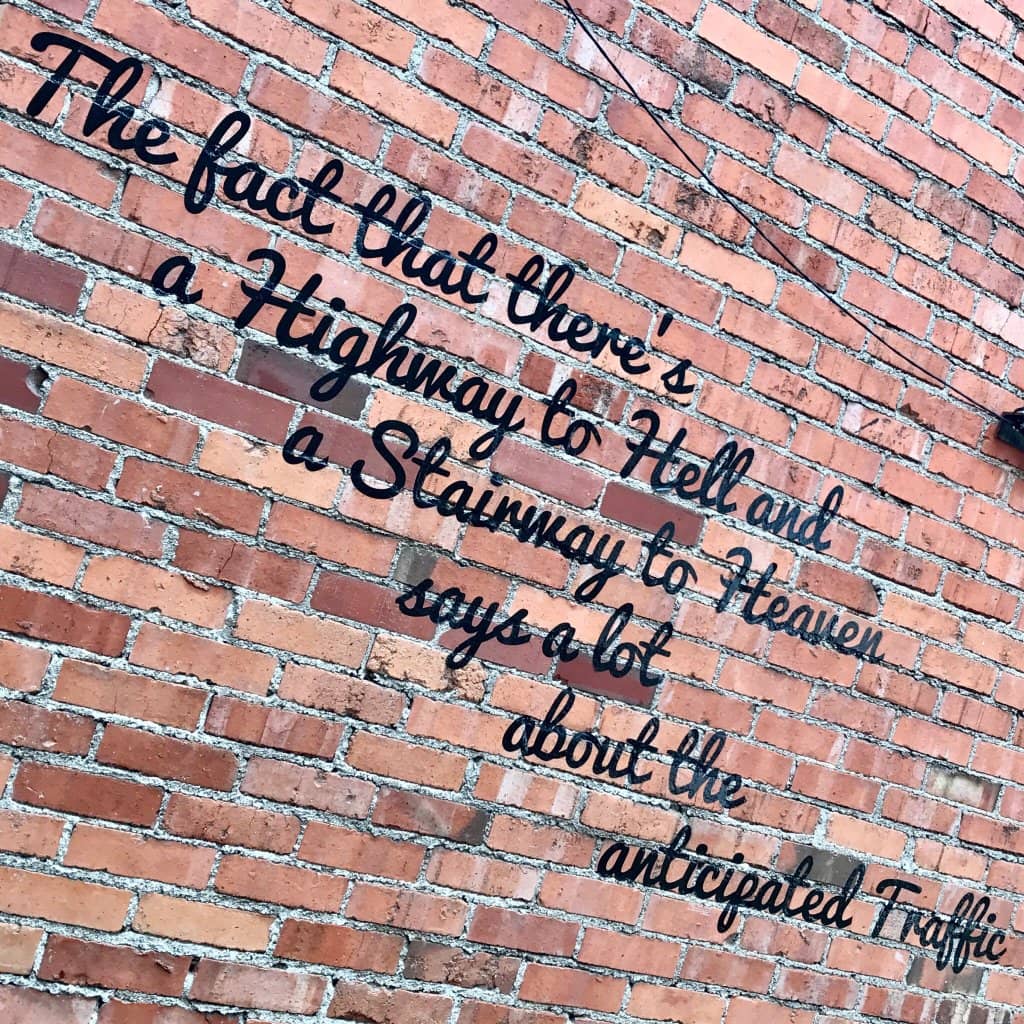 The fact that there's
a Highway to Hell and
a Stairway to Heaven
says a lot
about the
anticipated Traffic